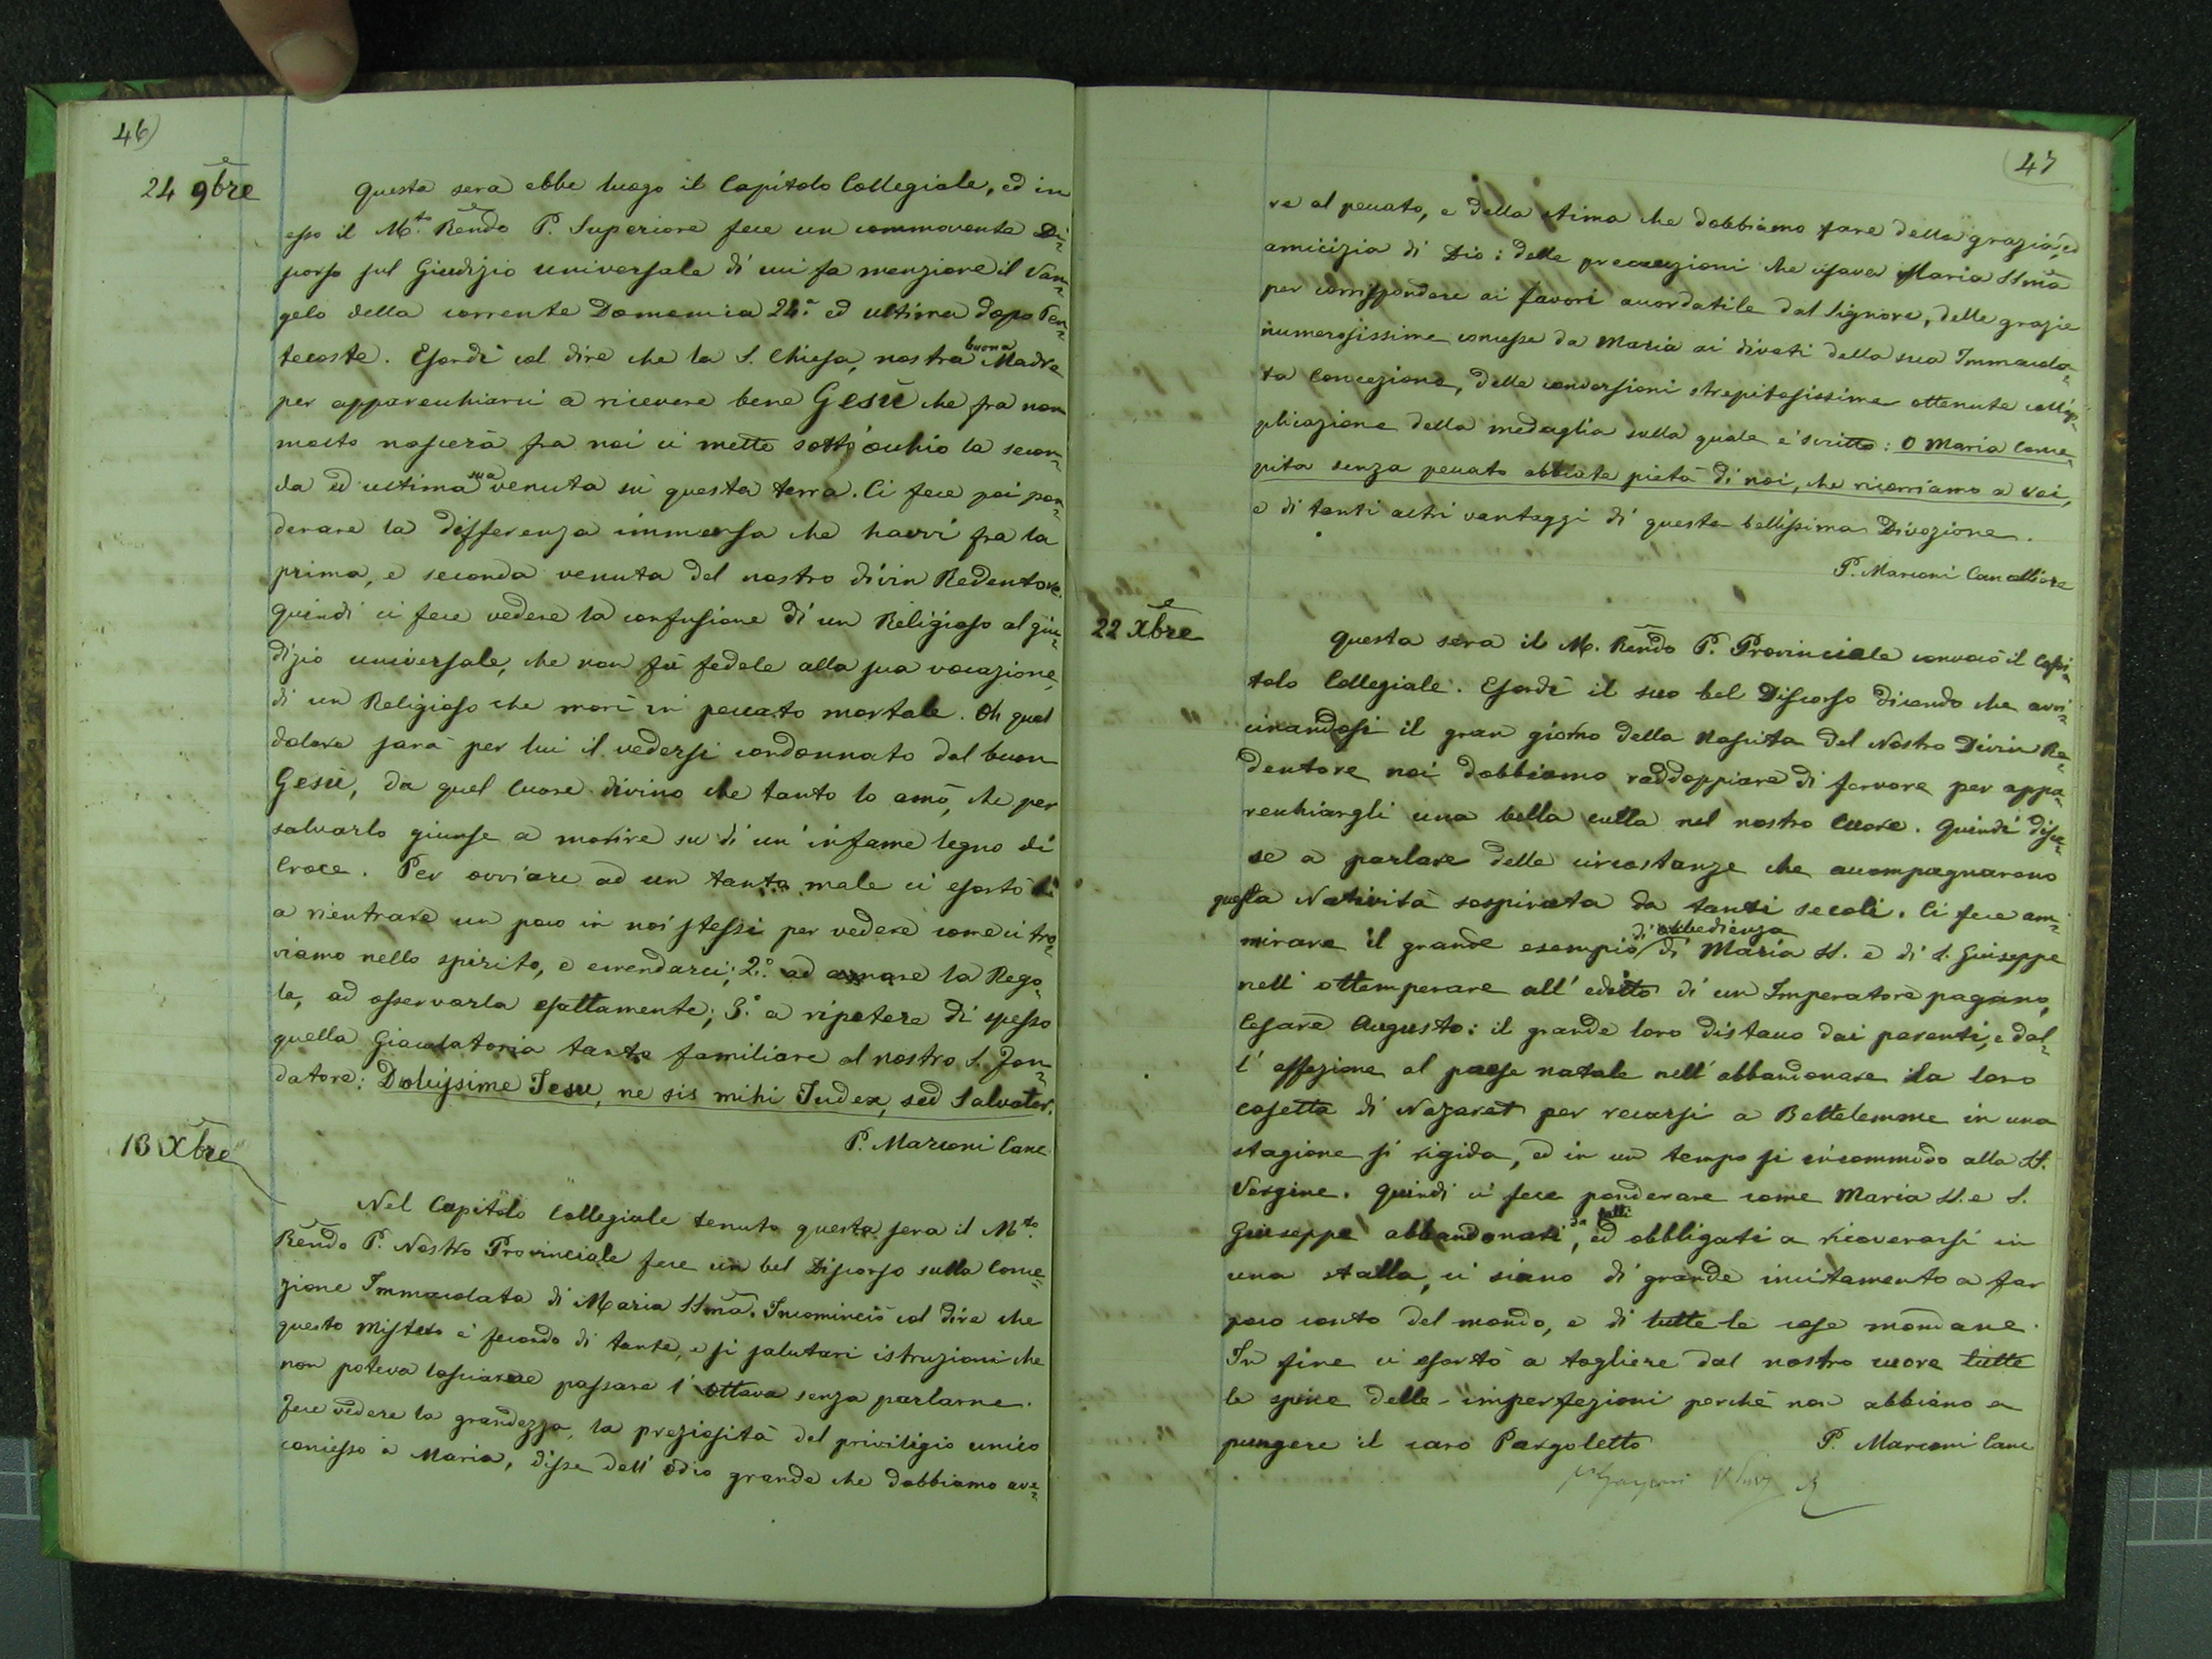 46)
24 9bre
Questa sera ebbe luogo il Capitolo Collegiale, ed in
esso il M.to Rendo P. Superiore fece un commovente Di=
scorso sul Giudizio universale di cui fa menzione il Van=
gelo della corrente Domenica 24.a ed ultima dopo Pen=
tecoste. Esordì col dire che la S. Chiesa, nostra buona Madre
per apparecchiarci a ricevere bene Gesù che fra non
molto nascerà fra noi ci mette sott'occhio la secon=
da ed ultima sua venuta sù questa terra. Ci fece poi pon=
derare la differenza immensa che havvi fra la
prima, e seconda venuta del nostro divin Redentore.
Quindi ci fece vedere la confusione di un Religioso al giu=
dizio universale, che non fù fedele alla sua vocazione,
di un Religioso che morì in peccato mortale. Oh qual
dolore sarà per lui il vedersi condannato dal buon
Gesù, da quel Cuore divino che tanto lo amò, che per
salvarlo giunse a morire su di un' infame legno di
Croce. Per ovviare ad un tanto male ci esortò
a rientrare un poco in noi stessi per vedere come ci tro=
viamo nello spirito, e emendarci; 2.o ad amare la Rego=
la, ad osservarla esattamente; 3.o a ripetere di spesso
quella Giaculatoria tanto familiare al nostro S. Fon=
datore: Dulcissime Jesu, ne sis mihi Judex, sed Salvator.
P. Marconi Canc
13 Xbre
Nel Capitolo Collegiale tenuto questa sera il M.to
Rendo P. Nostro Provinciale fece un bel Discorso sulla Conce=
zione Immacolata di Maria SSma. Incominciò col dire che
questo Mistero è fecondo di tante, e sì salutari istruzioni che
non poteva lasciare passare l'Ottava senza parlarne.
Fece vedere la grandezza, la preziosità del privilegio unico
concesso a Maria, disse dell'odio grande che dobbiamo ave=
47
re al peccato, e della stima che dobbiamo fare della grazia, ed
amicizia di Dio: delle precauzioni che usava Maria SSma
per corrispondere ai favori accordatile dal Signore, delle grazie
numerosissime concesse da Maria ai divoti della sua Immacola=
ta Concezione, delle conversioni strepitosissime ottenute coll'ap=
plicazione della medaglia sulla quale è scritto: O Maria Conce=
pita senza peccato abbiate pietà di noi, che ricorriamo a voi,
e di tanti altri vantaggi di questa bellissima Divozione.
P. Marconi Cancelliere
22 Xbre
Questa sera il M. Rendo P. Provinciale convocò il Capi=
tolo Collegiale. Esordì il suo bel Discorso dicendo che avvi=
cinandosi il gran giorno della Nascita del Nostro Divin Re=
dentore noi dobbiamo raddoppiare di fervore per appa=
recchiargli una bella culla nel nostro Cuore. Quindi disce=
se a parlare delle circostanze che accompagnarono
questa Natività sospirata da tanti secoli. Ci fece am=
mirare il grande esempio di obbedienza di Maria SS. e di S. Giuseppe
nell'ottemperare all'editto di un Imperatore pagano,
Cesare Augusto: il grande loro distacco dai parenti, e dal=
l'affezione al paese natale nell'abbandonare la loro
casetta di Nazaret per recarsi a Bettelemme in una
stagione sì rigida, ed in un tempo sì incommodo alla SS.
Vergine. Quindi ci fece ponderare come Maria SS. e S.
Giuseppe abbandonati da tutti, ed obbligati a ricoverarsi in
una stalla, ci siano di grande incitamento a far
poco conto del mondo, e di tutte le cose mondane.
In fine ci esortò a togliere dal nostro cuore tutte
le spine delle imperfezioni perchè non abbiano a
pungere il caro Pargoletto
P. Marconi Canc